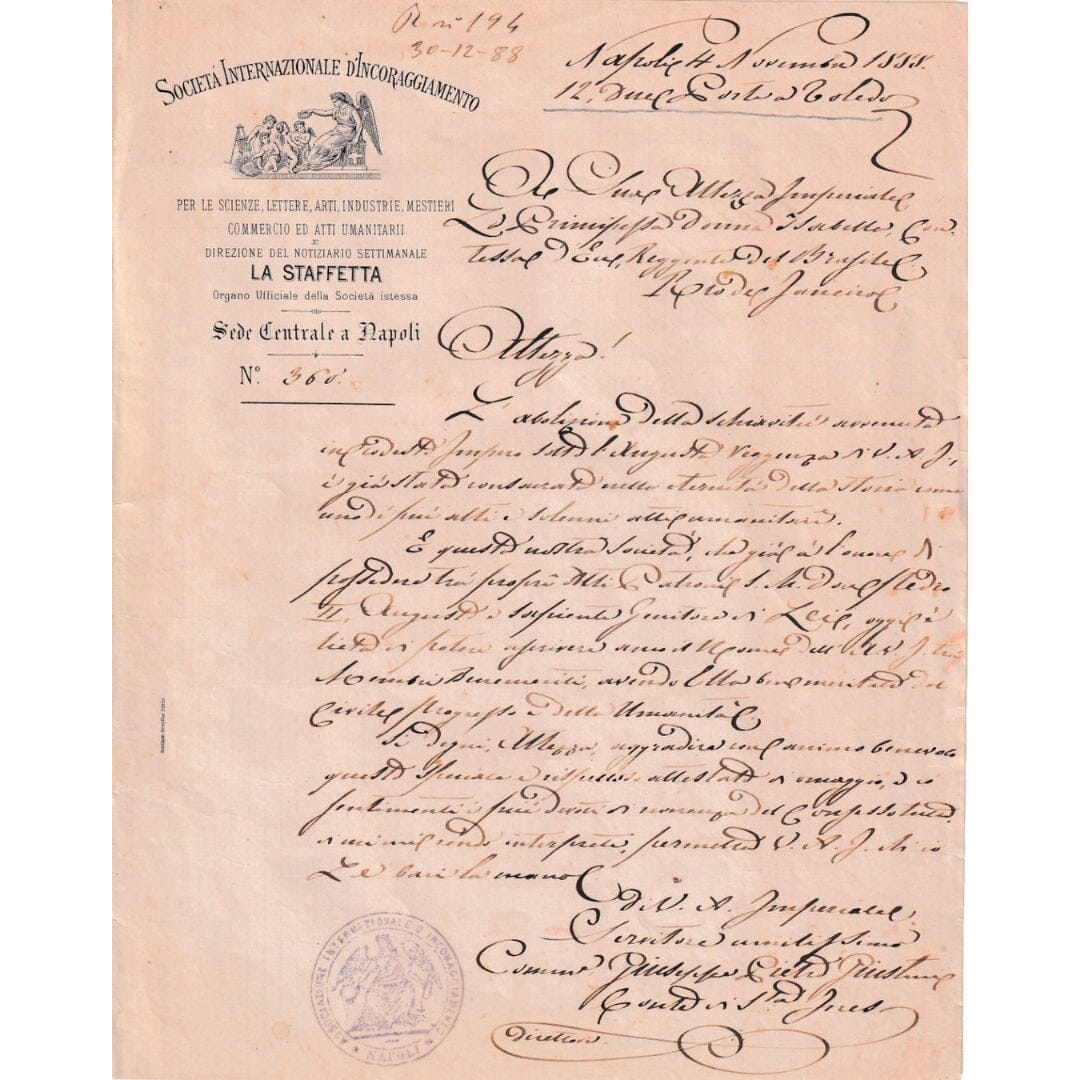 R nº 194
30-12-88
Napoli 4 Novembre 1888.
12, Due Porte a Toledo
SOCIETÁ INTERNAZIONALE D'INCORAGGIAMENTO
PER LE SCIENZE, LETTERE, ARTI, INDUSTRIE, MESTIERI
COMMERCIO ED ATTI UMANITARII
E
DIREZIONE DEL NOTIZIARIO SETTIMANALE
LA STAFFETTA
Organo Ufficiale della Societá istessa
Sede Centrale a Napoli
N.º 360.
A Sua Altezza Imperiale
La Principessa Donna Isabella, Con-
tessa d'Eu, Reggente del Brasile.
Rio de Janeiro
Altezza!
L'abolizione della schiavitù avvenuta
in codesto Impero sotto l'Augusta reggenza di V. A. I.,
è già stata consacrata nella eternità della storia come
uno di più alti e solenni atti umanitarî.
E questa nostra Società, che già à l'onore di
possedere tra proprî Alti Patroni S. M. Don Pedro
II, Augusto e sapiente Genitore di Lei, oggi è
lieta di potere ascrivere anco il Nome dell' A. V. I. tra
Membri Benemeriti, avendo Ella ben meritato del
Civile progresso e della Umanità.
Si degni, Altezza, aggradire con animo benevolo
questo speciale e rispettoso attestato di omaggio, e i
sentimenti i più devoti di onoranza del Consesso tutto
di cui mi rendo interprete, permetta V. A. I. ch'io
Le baci la mano
Di V. A. Imperiale
Servitore umilissimo
Comm.r Giuseppe Giustino
Conte di Sta Ines
direttore
ASSOCIAZIONE INTERNAZIONALE D'INCORAGGIAMENTO
NAPOLI